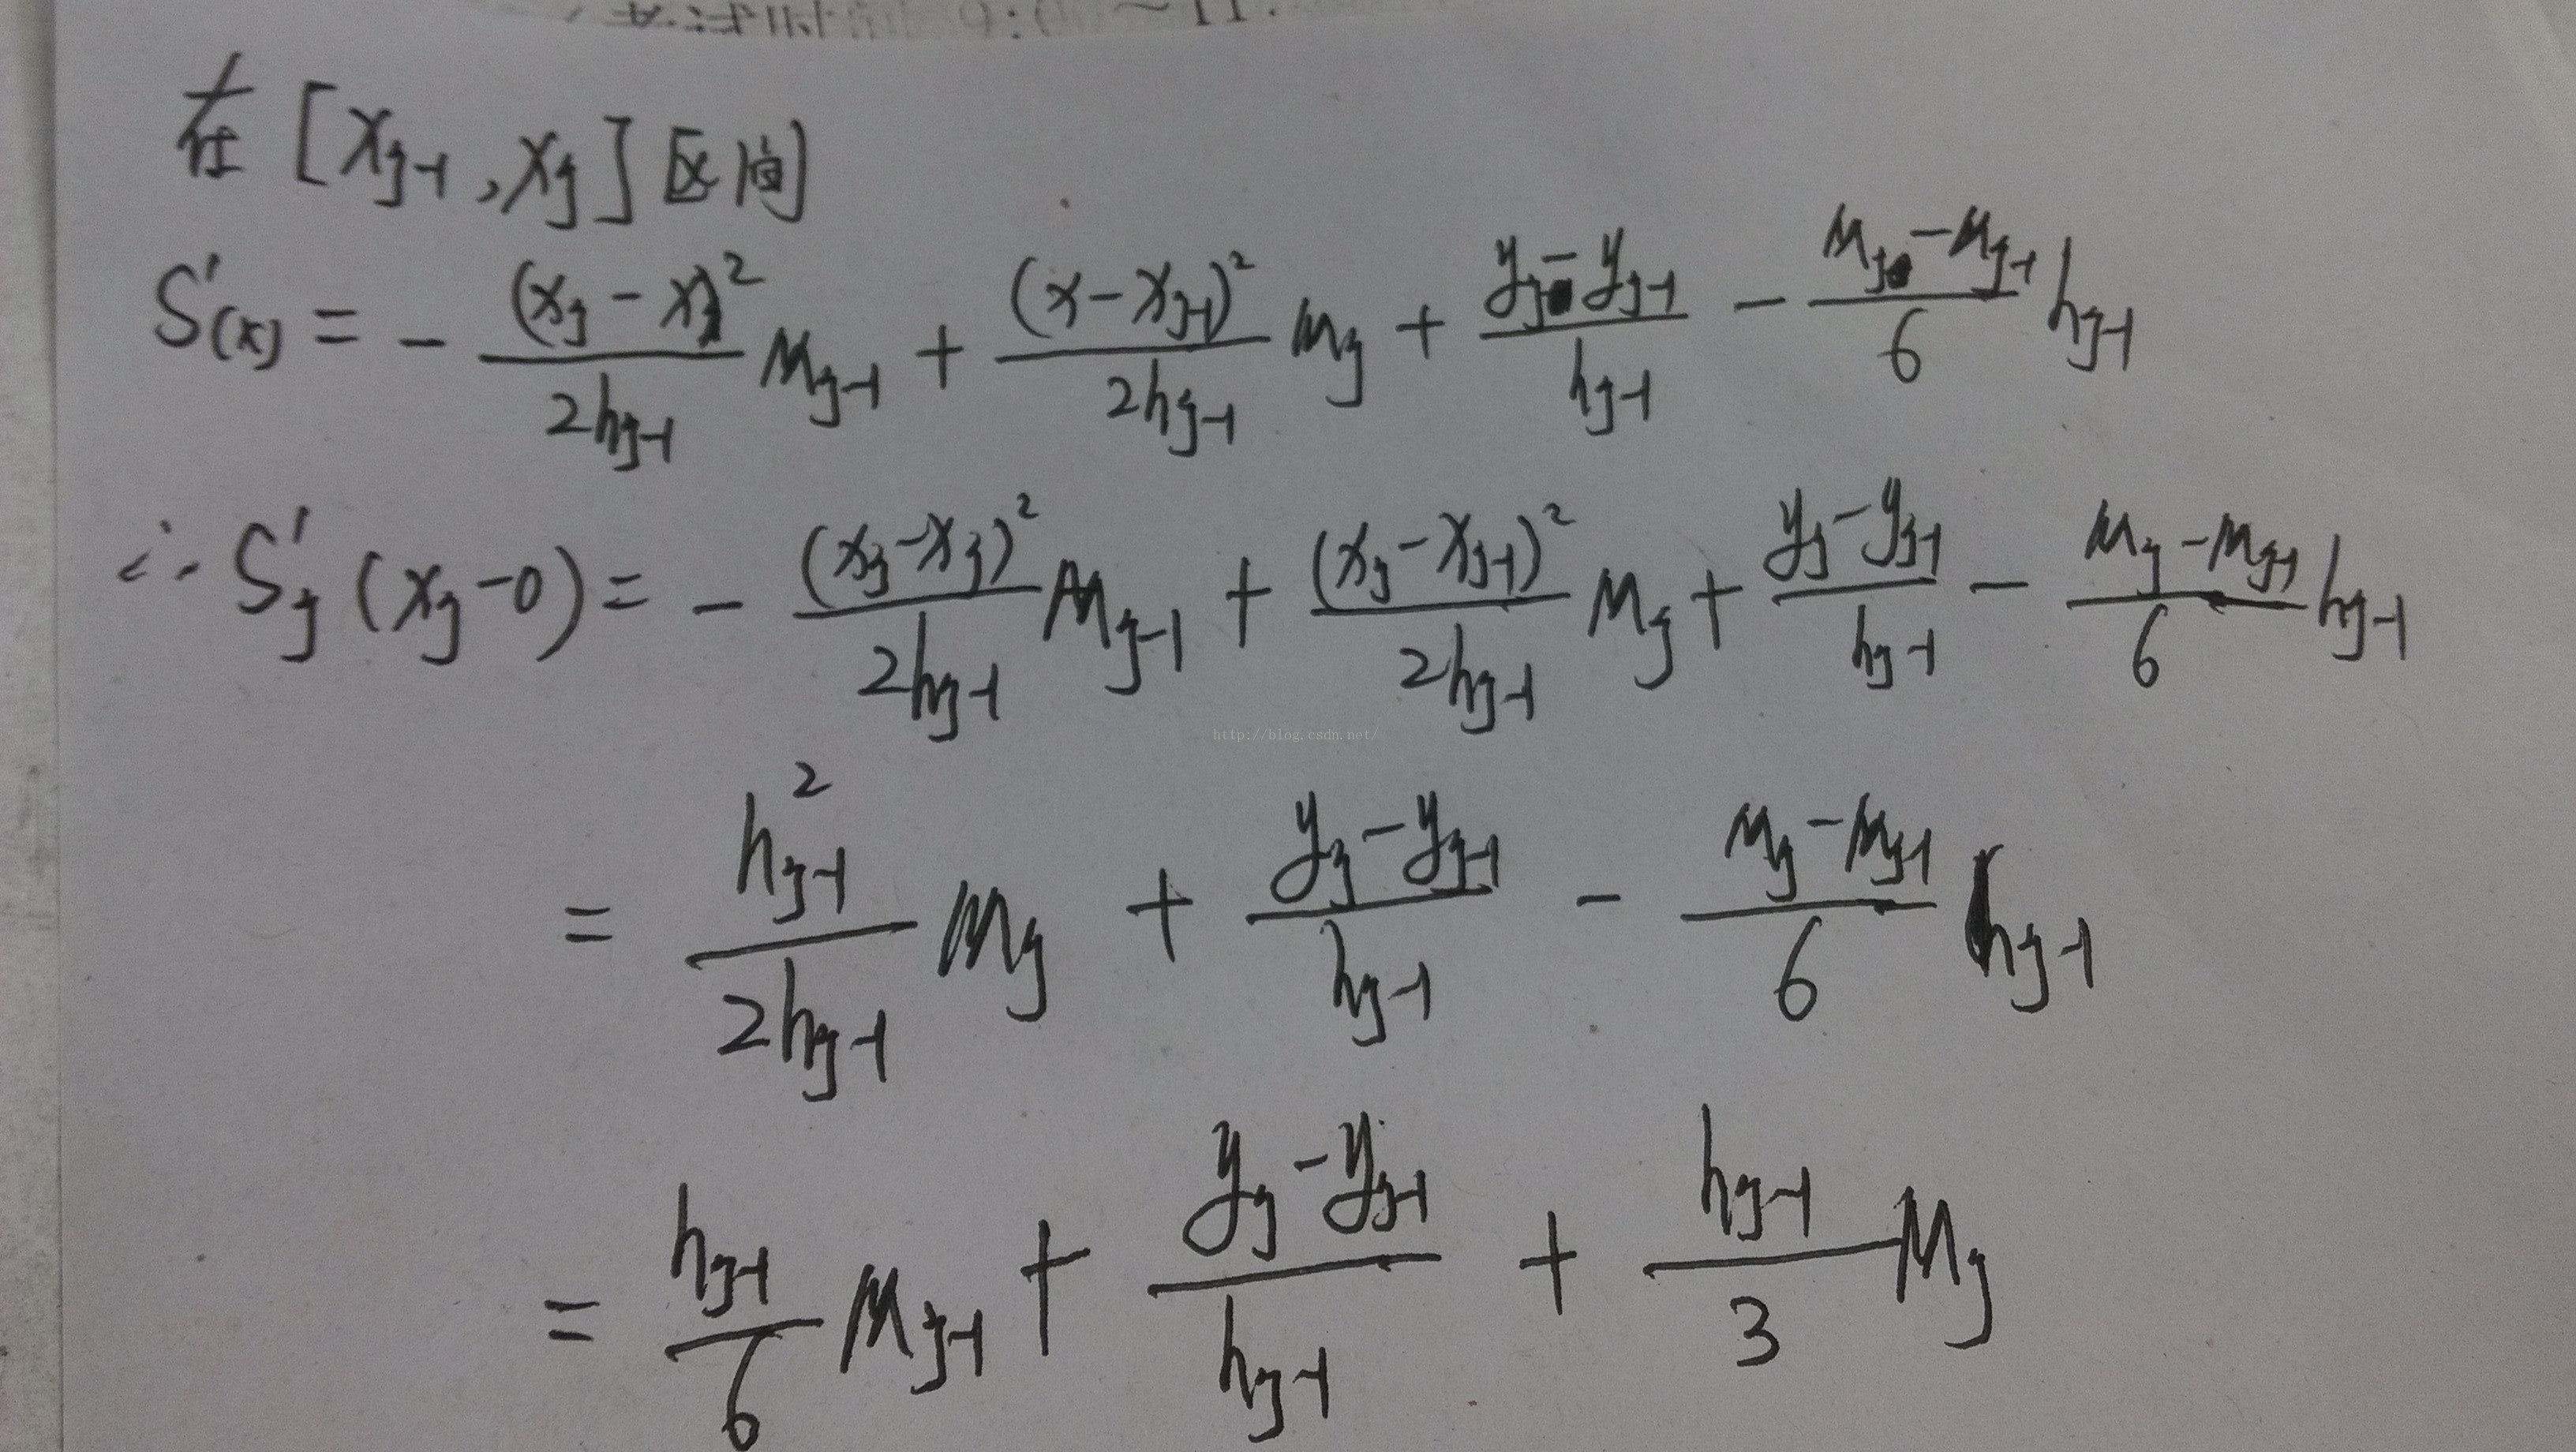 在 [x_{j-1}, x_j] 区间
S'(x) = - \frac{(x_j - x)^2}{2h_{j-1}} M_{j-1} + \frac{(x - x_{j-1})^2}{2h_{j-1}} M_j + \frac{y_j - y_{j-1}}{h_{j-1}} - \frac{M_j - M_{j-1}}{6} h_{j-1}
∴ S'_j (x_j - 0) = - \frac{(x_j - x_j)^2}{2h_{j-1}} M_{j-1} + \frac{(x_j - x_{j-1})^2}{2h_{j-1}} M_j + \frac{y_j - y_{j-1}}{h_{j-1}} - \frac{M_j - M_{j-1}}{6} h_{j-1}
http://blog.csdn.net/
= \frac{h_{j-1}^2}{2h_{j-1}} M_j + \frac{y_j - y_{j-1}}{h_{j-1}} - \frac{M_j - M_{j-1}}{6} h_{j-1}
= \frac{h_{j-1}}{6} M_{j-1} + \frac{y_j - y_{j-1}}{h_{j-1}} + \frac{h_{j-1}}{3} M_j